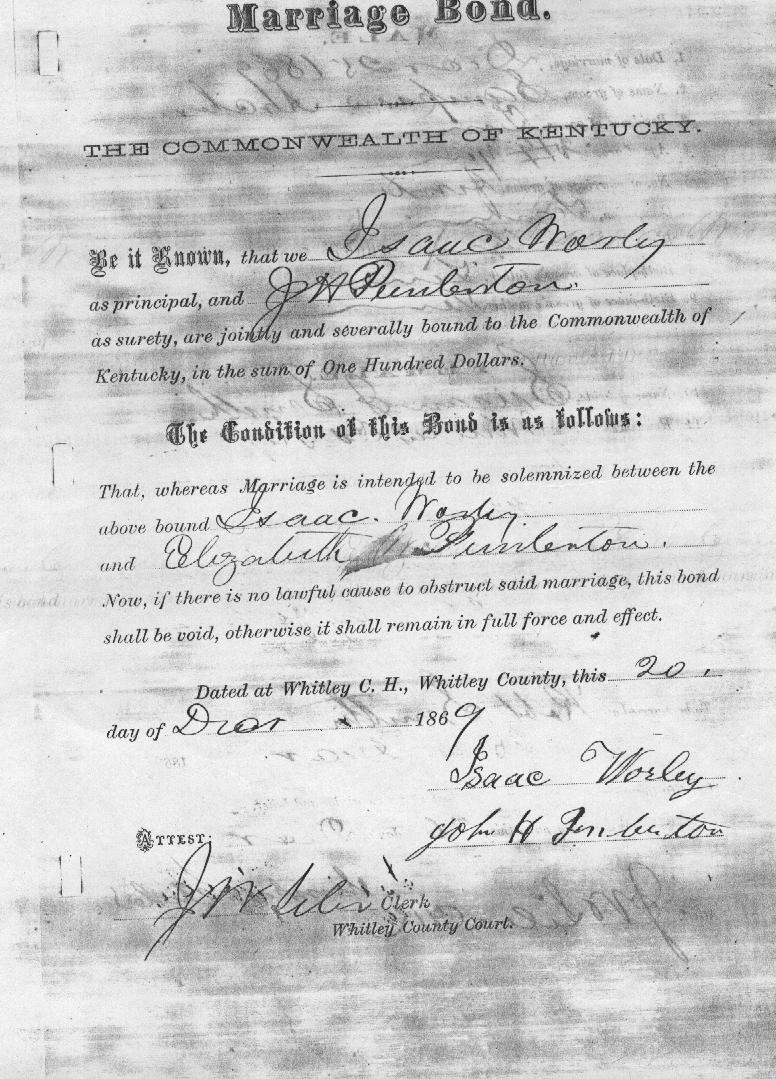 Marriage Bond.
THE COMMONWEALTH OF KENTUCKY.
Be it Known, that we Isaac Worley
as principal, and J H Pemberton.
as surety, are jointly and severally bound to the Commonwealth of
Kentucky, in the sum of One Hundred Dollars.
The Condition of this Bond is as follows:
That, whereas Marriage is intended to be solemnized between the
above bound Isaac. Worley
and Elizabeth Pemberton.
Now, if there is no lawful cause to obstruct said marriage, this bond
shall be void, otherwise it shall remain in full force and effect.
Dated at Whitley C. H., Whitley County, this 20.
day of 1869
Isaac Worley
John H Pemberton
ATTEST:
J W Clerk
Whitley County Court.